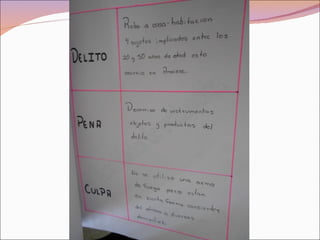 DELITO
Robo a casa-habitacion
4 sujetos implicados entre los
20 y 50 años de edad esto
ocurrio en
PENA
Decomiso de instrumentos
objetos y productos del
delito.
CULPA
No se utilizo una arma
de fuego pero estan
en cierta forma conscientes
del